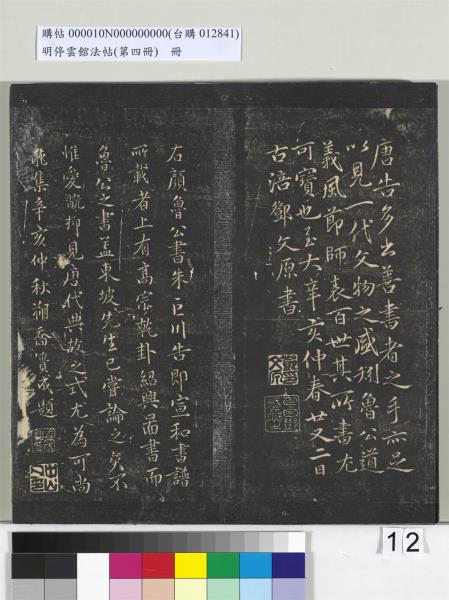 購帖 000010N000000000(台購 012841)
明停雲館法帖(第四冊) 冊
唐告多出善書者之手亦足
以見一代文物之盛矧魯公道
義風節師表百世其所書尤
可寶也至大辛亥仲春廿又二日
古涪鄧文原書
右顏魯公書朱巨川告即宣和書譜
所載者上有高宗乾卦紹興書而
魯公之書蓋東坡先生已嘗論之矣不
惟愛翫抑見唐代典故之式尤為可尚
龍集辛亥仲秋朔喬簣成題
12